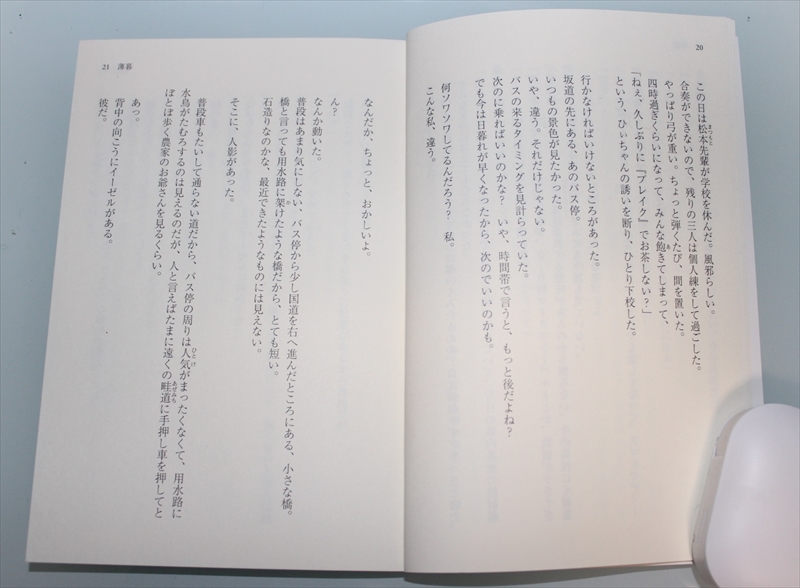 20
この日は松本先輩が学校を休んだ。風邪らしい。
合奏ができないので、残りの三人は個人練をして過ごした。
やっぱり弓が重い。ちょっと弾くたび、間を置いた。
四時過ぎくらいになって、みんな飽きてしまって、
「ねぇ、久しぶりに『ブレイク』でお茶しない?」
という、ひぃちゃんの誘いを断り、ひとり下校した。
行かなければいけないところがあった。
坂道の先にある、あのバス停。
いつもの景色が見たかった。
いや、違う。それだけじゃない。
バスの来るタイミングを見計らっていた。
次のに乗ればいいのかな? いや、時間帯で言うと、もっと後だよね?
でも今は日暮れが早くなったから、次のでいいのかも。
何ソワソワしてるんだろう? 私。
こんな私、違う。
21 薄暮
なんだか、ちょっと、おかしいよ。
ん?
なんか動いた。
普段はあまり気にしない、バス停から少し国道を右へ進んだところにある、小さな橋。
橋と言っても用水路に架けたような橋だから、とても短い。
石造りなのかな、最近できたようなものには見えない。
そこに、人影があった。
普段車もたいして通らない道だから、バス停の周りは人気がまったくなくて、用水路に
水鳥がたむろするのは見えるのだが、人と言えばたまに遠くの畦道に手押し車を押してと
ぼとぼ歩く農家のお爺さんを見るくらい。
あっ。
背中の向こうにイーゼルがある。
彼だ。